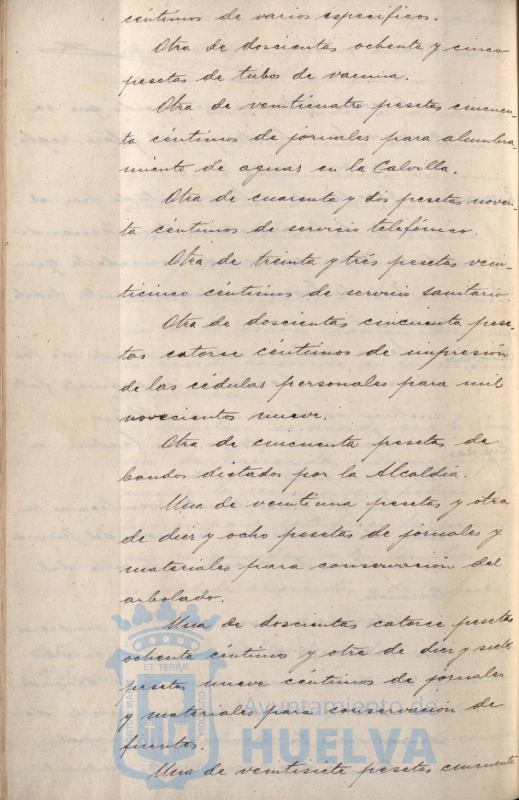 céntimos de varios específicos.
Otra de doscientas ochenta y cinco
pesetas de tubos de vacuna.
Otra de veinticuatro pesetas cincuen-
ta céntimos de jornales para alumbra-
miento de aguas en la Calvilla.
Otra de cuarenta y dos pesetas noven-
ta céntimos de servicio telefónico.
Otra de treinta y trés pesetas vein-
ticinco céntimos de servicio sanitario.
Otra de doscientas cincuenta pese-
tas catorce céntimos de impresión
de las cédulas personales para mil
novecientos nueve.
Otra de cincuenta pesetas de
bandos dictados por la Alcaldía.
Una de veintiuna pesetas y otra
de diez y ocho pesetas de jornales y
materiales para conservación del
arbolado.
Una de doscientas catorce pesetas
ochenta céntimos y otra de diez y siete
pesetas nueve céntimos de jornales
y materiales para conservación de
fuentes.
Una de veintisiete pesetas cincuenta
ET TERRÆ
Ayuntamiento de
HUELVA